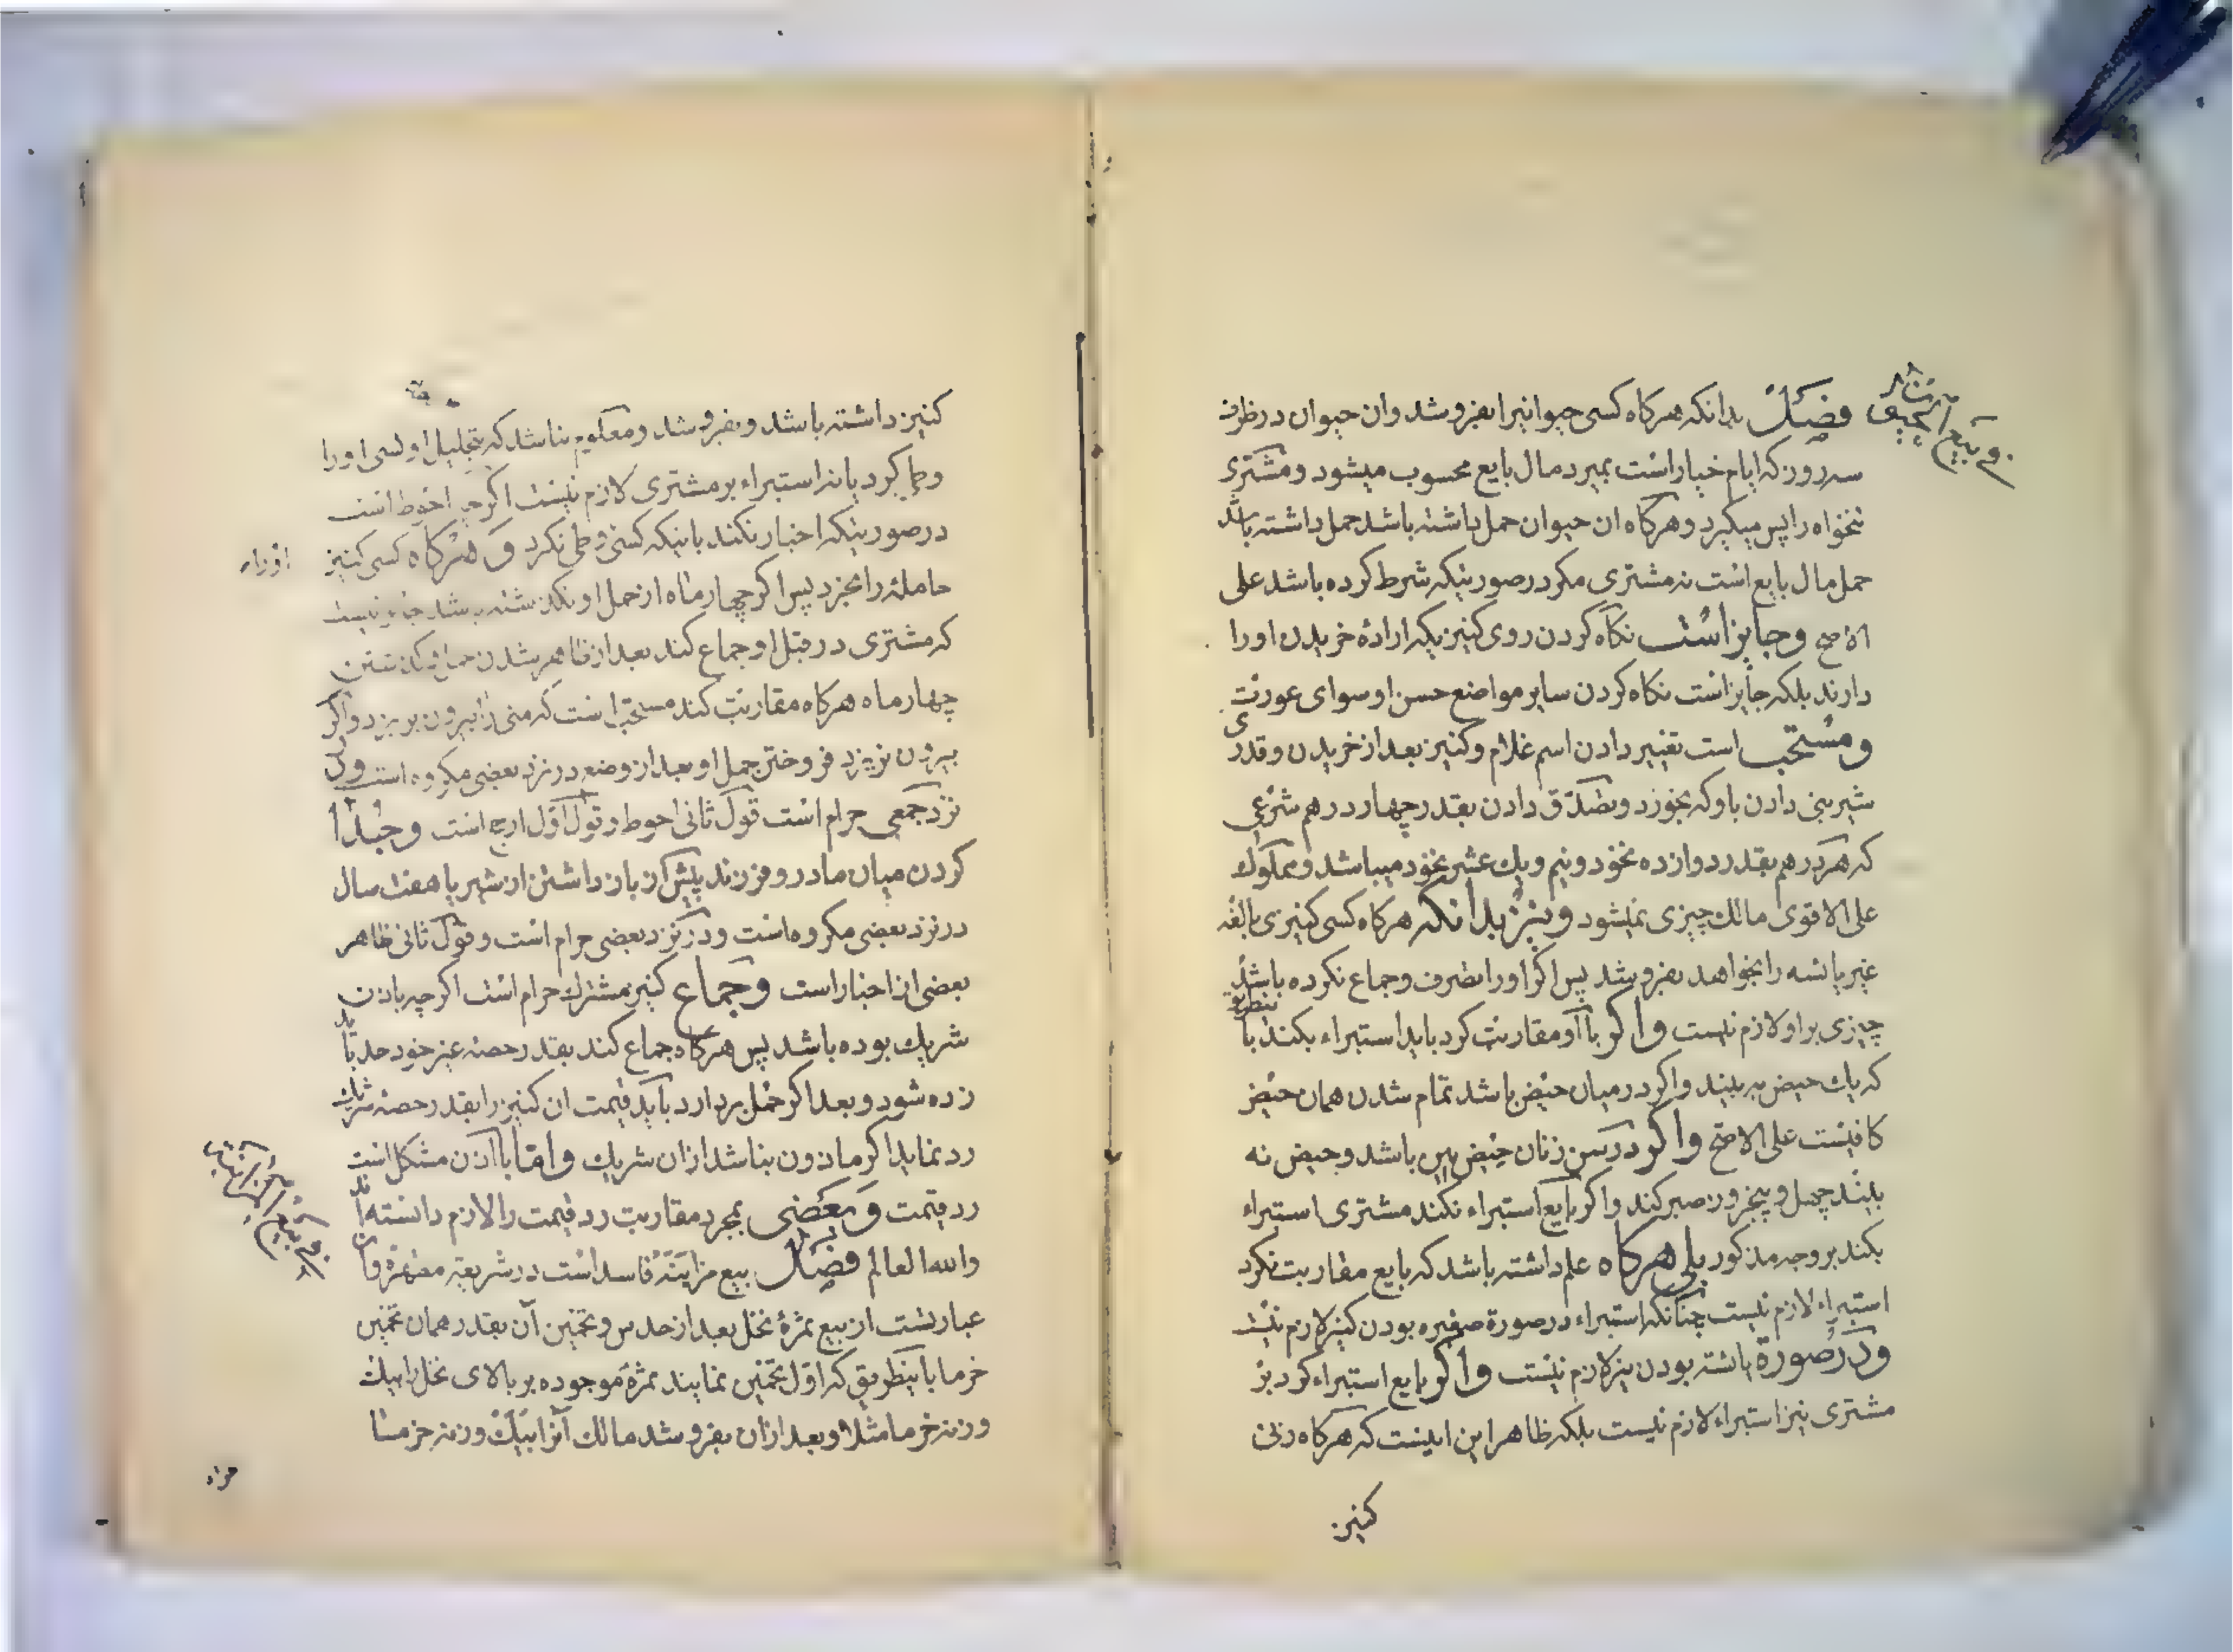 فصل بدانکه هرکاه کسی حیوانیرا بفروشد وان حیوان در ظرف
سه روز که ایام خیار است بمیرد مال بایع محسوب میشود و مشتری
تنخواه را پس میکیرد و هرکاه ان حیوان حمل داشته باشد حمل داشته باشد
حمل مال بایع است نه مشتری مکر در صورتیکه شرط کرده باشد علی
الاصح وجایز است نکاه کردن روی کنیزیکه اراده خریدن اورا
دارند بلکه جایز است نکاه کردن سایر مواضع حسن او سوای عورت
ومستحب است تغییر دادن اسم غلام وکنیز بعد از خریدن وقدری
شیرینی دادن باو که بخورد وتصدّق دادن بقدر چهار درهم شرعی
که هر درهم بقدر دوازده نخود ونیم ویك عشیر نخود میباشد ومملوك
علی الاقوی مالك چیزی نمیشود ونیز بدانکه هرکاه کسی کنیزی بالغه
غیر یائسه را بخواهد بفروشد پس اکر اورا تصرف وجماع نکرده باشد
چیزی بر او لازم نیست واکر با او مقاربت کرد باید استبراء بکند باینطریق
که یك حیض به بیند واکر در میان حیض باشد تمام شدن همان حیض
کافیست علی الاصح واکر در سن زنان حیض بین باشد وحیض نه
بیند چهل وپنجروز صبر کند واکر بایع استبراء نکند مشتری استبراء
بکند بر وجه مذکور بلی هرکاه علم داشته باشد که بایع مقاربت نکرد
استبراء لازم نیست چنانکه استبراء در صورة صغیره بودن کنیز لازم نیست
ودر صورة یائسه بودن نیز لازم نیست واکر بایع استبراء کرد بر
مشتری نیز استبراء لازم نیست بلکه ظاهر این اینست که هرکاه زنی
کنیز
کنیز داشته باشد وبفروشد ومعلوم نباشد که بتحلیل او کسی اورا
وطی کرد یا نه استبراء بر مشتری لازم نیست اکر چه احوط است
در صورتیکه اخبار نکند باینکه کسی وطی نکرد و هرکاه کسی کنیز
حامله را بخرد پس اکر چهار ماه از حمل او نکذشته باشد جایز نیست
که مشتری در قبل او جماع کند بعد از ظاهر شدن حمل وکذشتن
چهار ماه هرکاه مقاربت کند مستحب است که منی را بیرون بریزد واکر
بیرون نریزد فروختن حمل او بعد از وضع در نزد بعضی مکروه است ودر
نزد جمعی حرام است قول ثانی احوط وقول اوّل ارجح است وجدا
کردن میان مادر وفرزند پیش از باز داشتن از شیر یا هفت سال
در نزد بعضی مکروه است ودر نزد بعضی حرام است وقول ثانی ظاهر
بعضی از اخبار است وجماع کنیز مشترك حرام است اکر چه باذن
شریك بوده باشد پس هرکاه جماع کند بقدر حصه غیر خود حد باید
زده شود وبعد اکر حمل بردارد باید قیمت ان کنیز را بقدر حصه شریك
رد نماید اکر ماذون نباشد از ان شریك واما با اذن مشکل است
رد قیمت وبعضی بمجرد مقاربت رد قیمت را لازم دانسته اند
والله العالم فصل بیع مزابنه فاسد است در شریعه مطهرة وان
عبارتست از بیع ثمرهٔ نخل بعد از حدس وتخمین آن بقدر همان تخمین
خرما باینطریق که اوّل تخمین نمایند ثمرهٔ موجوده بر بالای نخل را بیك
وزنه خرما مثلا وبعد از ان بفروشد مالك آنرا بیك وزنه خرما